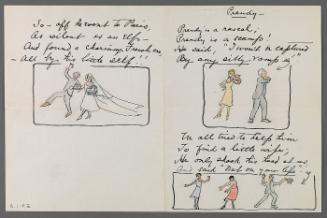 So - off he went to Paris,
As silent as an Elf -
And found a charming French one,
- All by his little self!!
Prendy -
Prendy is a rascal,
Prendy is a scamp!
He said, "I won't be captured
By any silly vamp"
We all tried to help him
To find a little wife;
He only shook his head at us,
And said "Not on your life"!